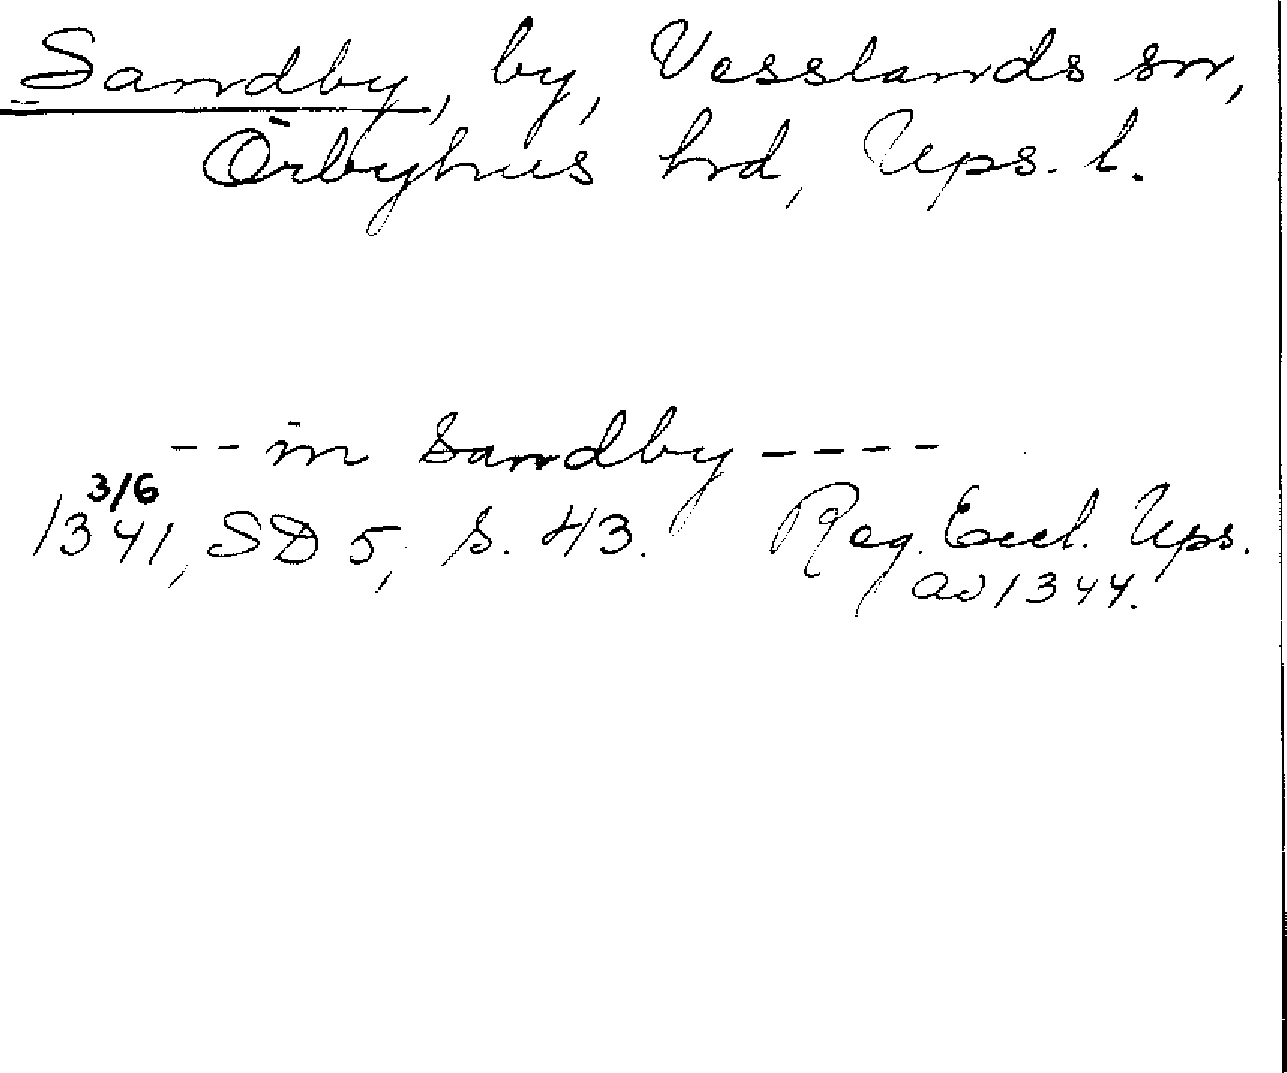 Sandby, by, Vesslands sn,
Örbyhus hrd, Ups. l.
-- in Sandby ----
3/6
1341, SD 5, s. 43. Reg. Eccl. Ups.
av 1344.